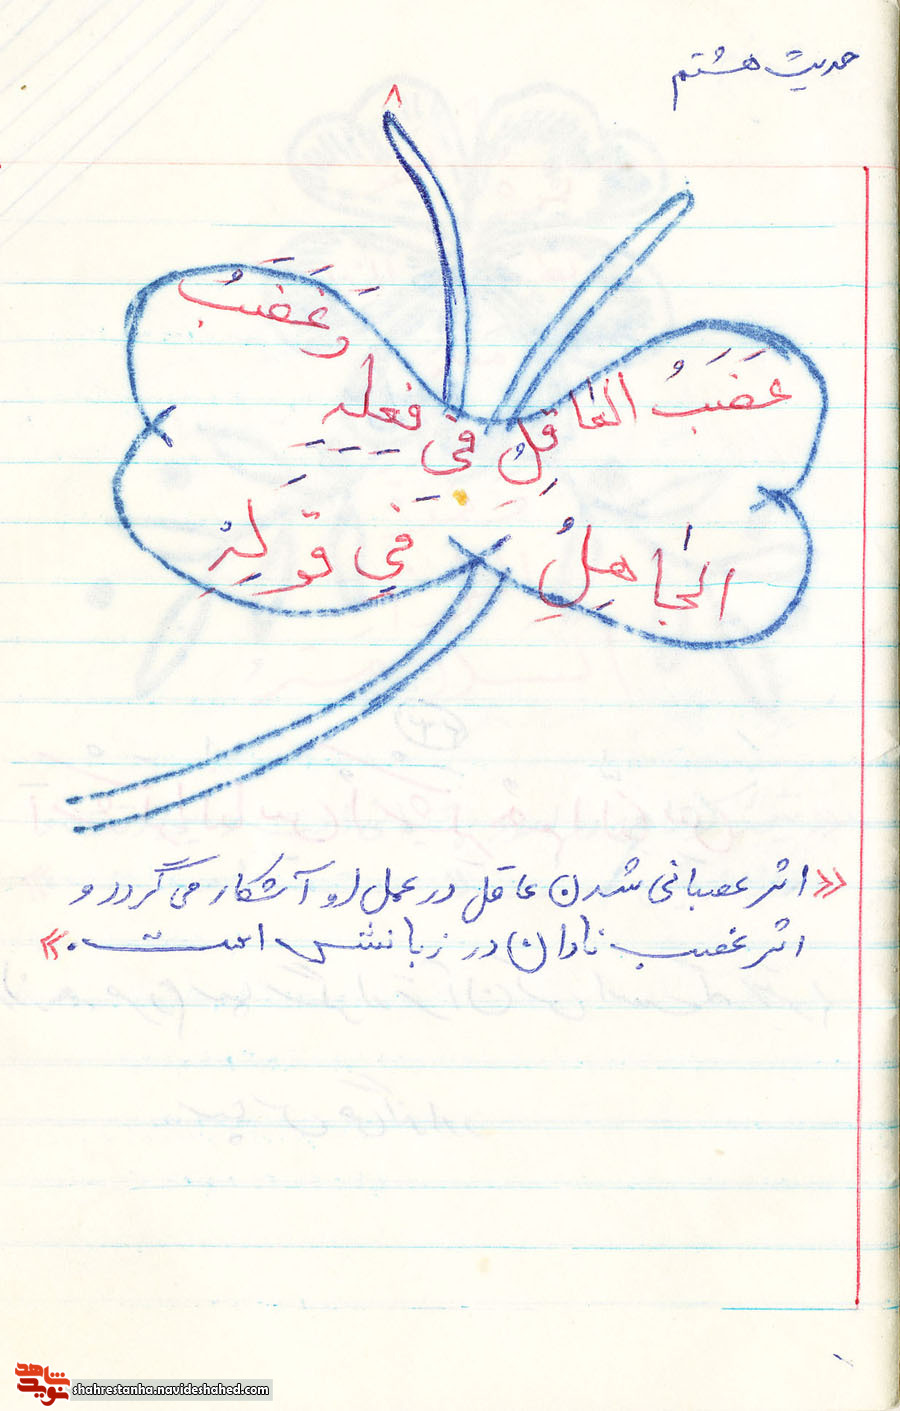 حدیث هشتم
۸
غَضَبُ العٰاقِلِ فی فعلِهِ وَ غَضَبُ
الجٰاهِلِ فی قولِهِ
«اثر عصبانی شدن عاقل در عمل او آشکار می گردد و
اثر غضب نادان در زبانش است.»
شاهد
نوید
shahrestanha.navideshahed.com